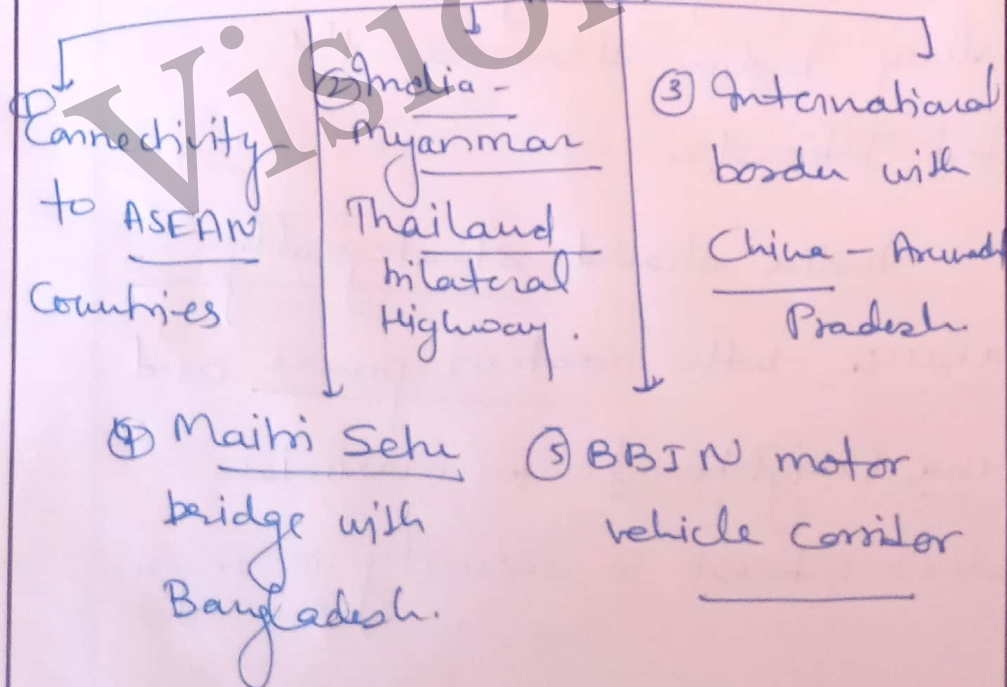 ① Connectivity
to ASEAN
Countries
② India -
Myanmar
Thailand
bilateral
Highway.
③ International
border with
China - Arunach
Pradesh.
④ Maitri Setu
bridge with
Bangladesh.
⑤ BBIN motor
vehicle corridor
Vision